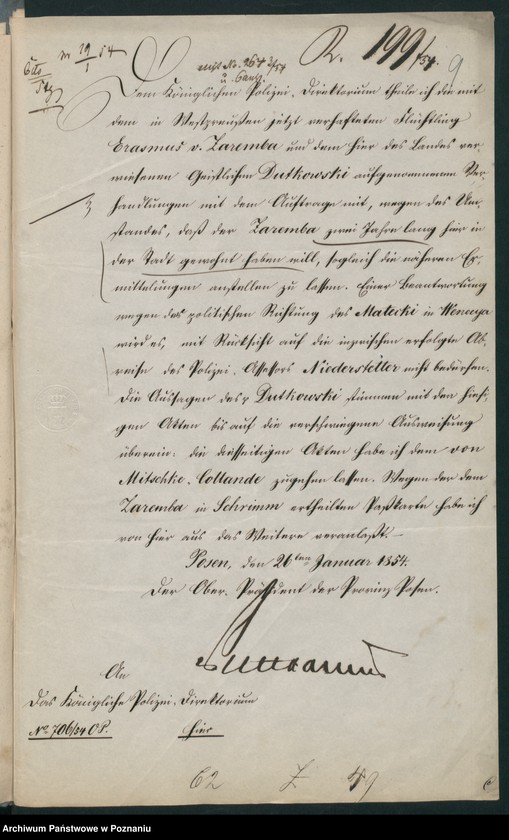 R. 199/54. 9
Cito
No 264 2/54
u. Canz.
Dem Königlichen Polizei-Direktorium theile ich die mit
dem in Westpreußen jetzt verhafteten Flüchtling
Erasmus v. Zaremba und dem hier des Landes ver-
wiesenen Geistlichen Dutkowski aufgenommenen Ver-
handlungen mit dem Auftrage mit, wegen des Um-
standes, daß der Zaremba zwei Jahre lang hier in
der Stadt gewohnt haben will, sogleich die näheren Er-
mittelungen anstellen zu lassen. Einer Beantwortung
wegen der politischen Richtung des Matecki in
wird es, mit Rücksicht auf die inzwischen erfolgte Ab-
reise des Polizei-Assessors Niederstetter nicht bedürfen.
Die Aussagen des p Dutkowski stimmen mit den hiesi-
gen Akten bis auf die verschwiegene Ausweisung
überein: die diesseitigen Akten habe ich dem von
Mitschke-Collande zugehen lassen. Wegen der dem
Zaremba in Schrimm ertheilten Paßkarte habe ich
von hier aus das Weitere veranlaßt.—
Posen, den 26ten Januar 1854.
Der Ober-Präsident der Provinz Posen.
An
das Königliche Polizei-Direktorium
No 706/54 O.P. hier
62
Archiwum Państwowe w Poznaniu